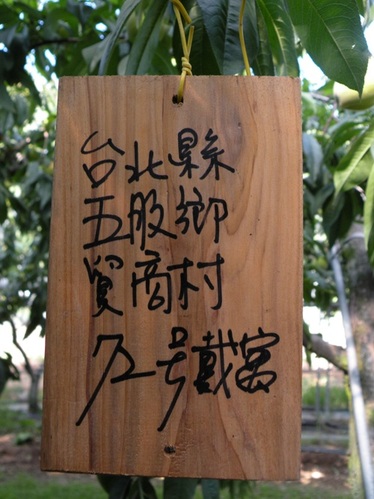 台北縣
五股鄉
貿商村
72号戴富